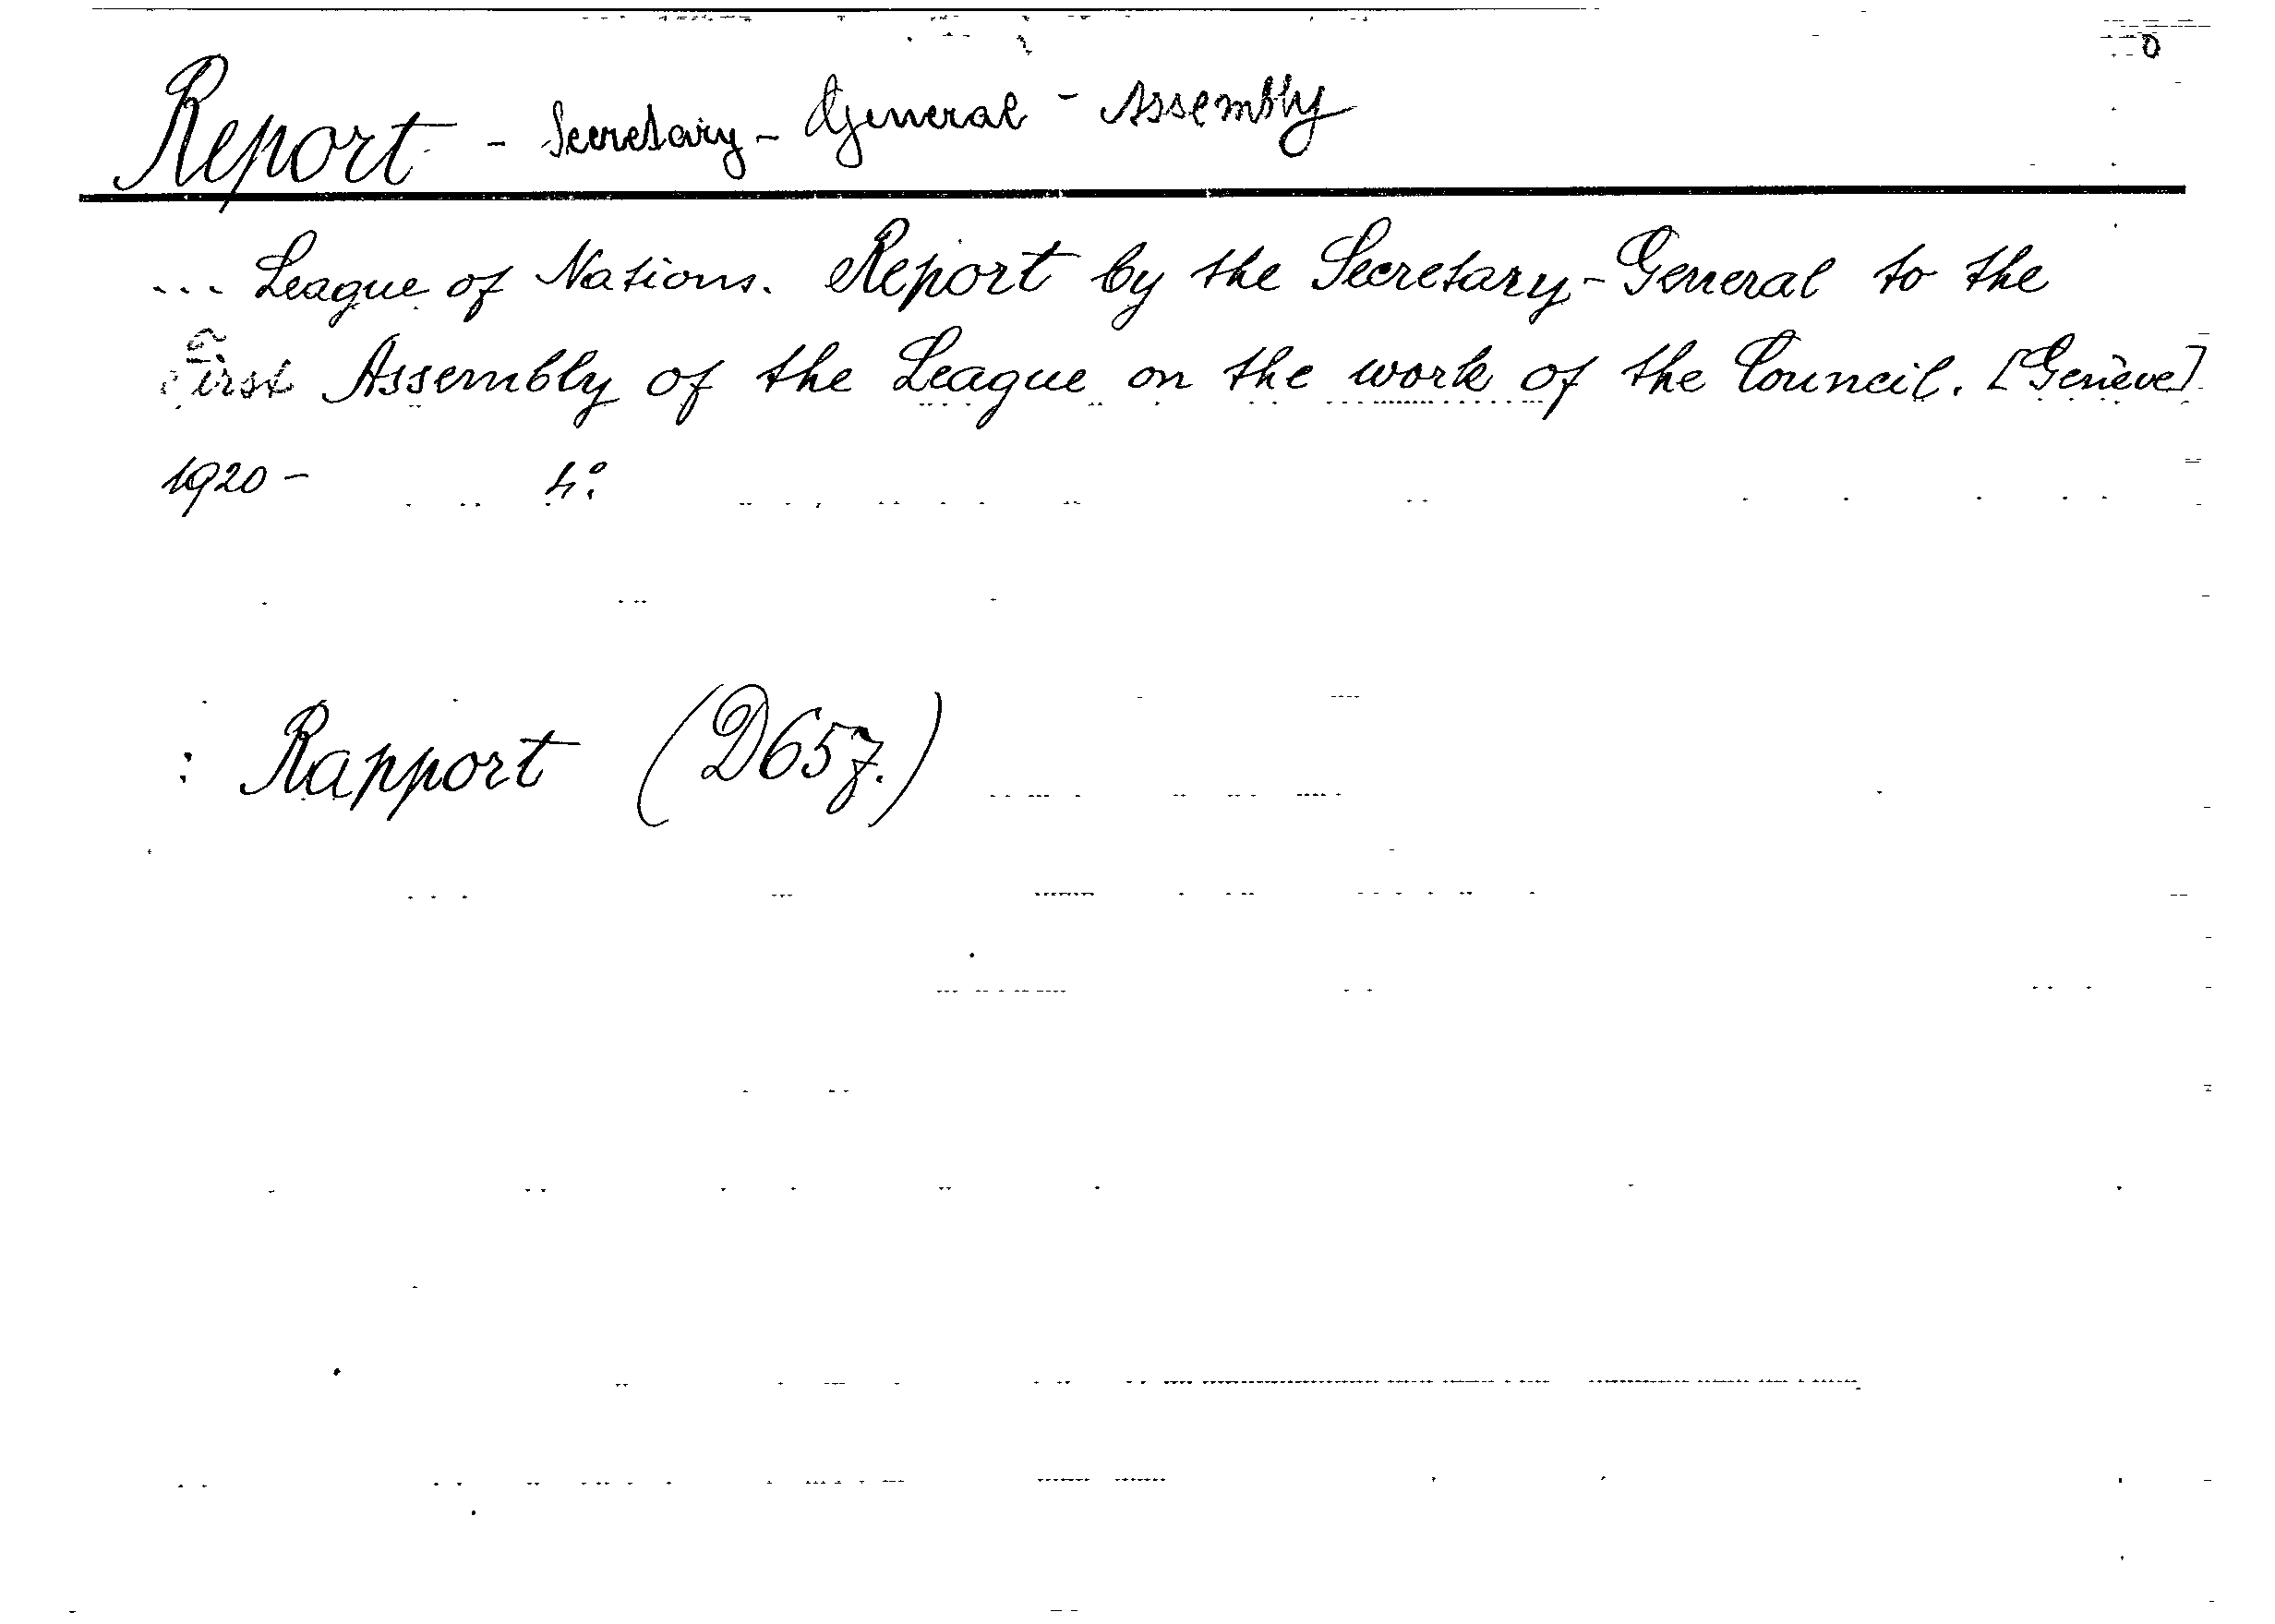 Report - Secretary - General - Assembly
... League of Nations. Report by the Secretary-General to the
First Assembly of the League on the work of the Council. [Genève]
1920 - 4º.
: Rapport (D657.)